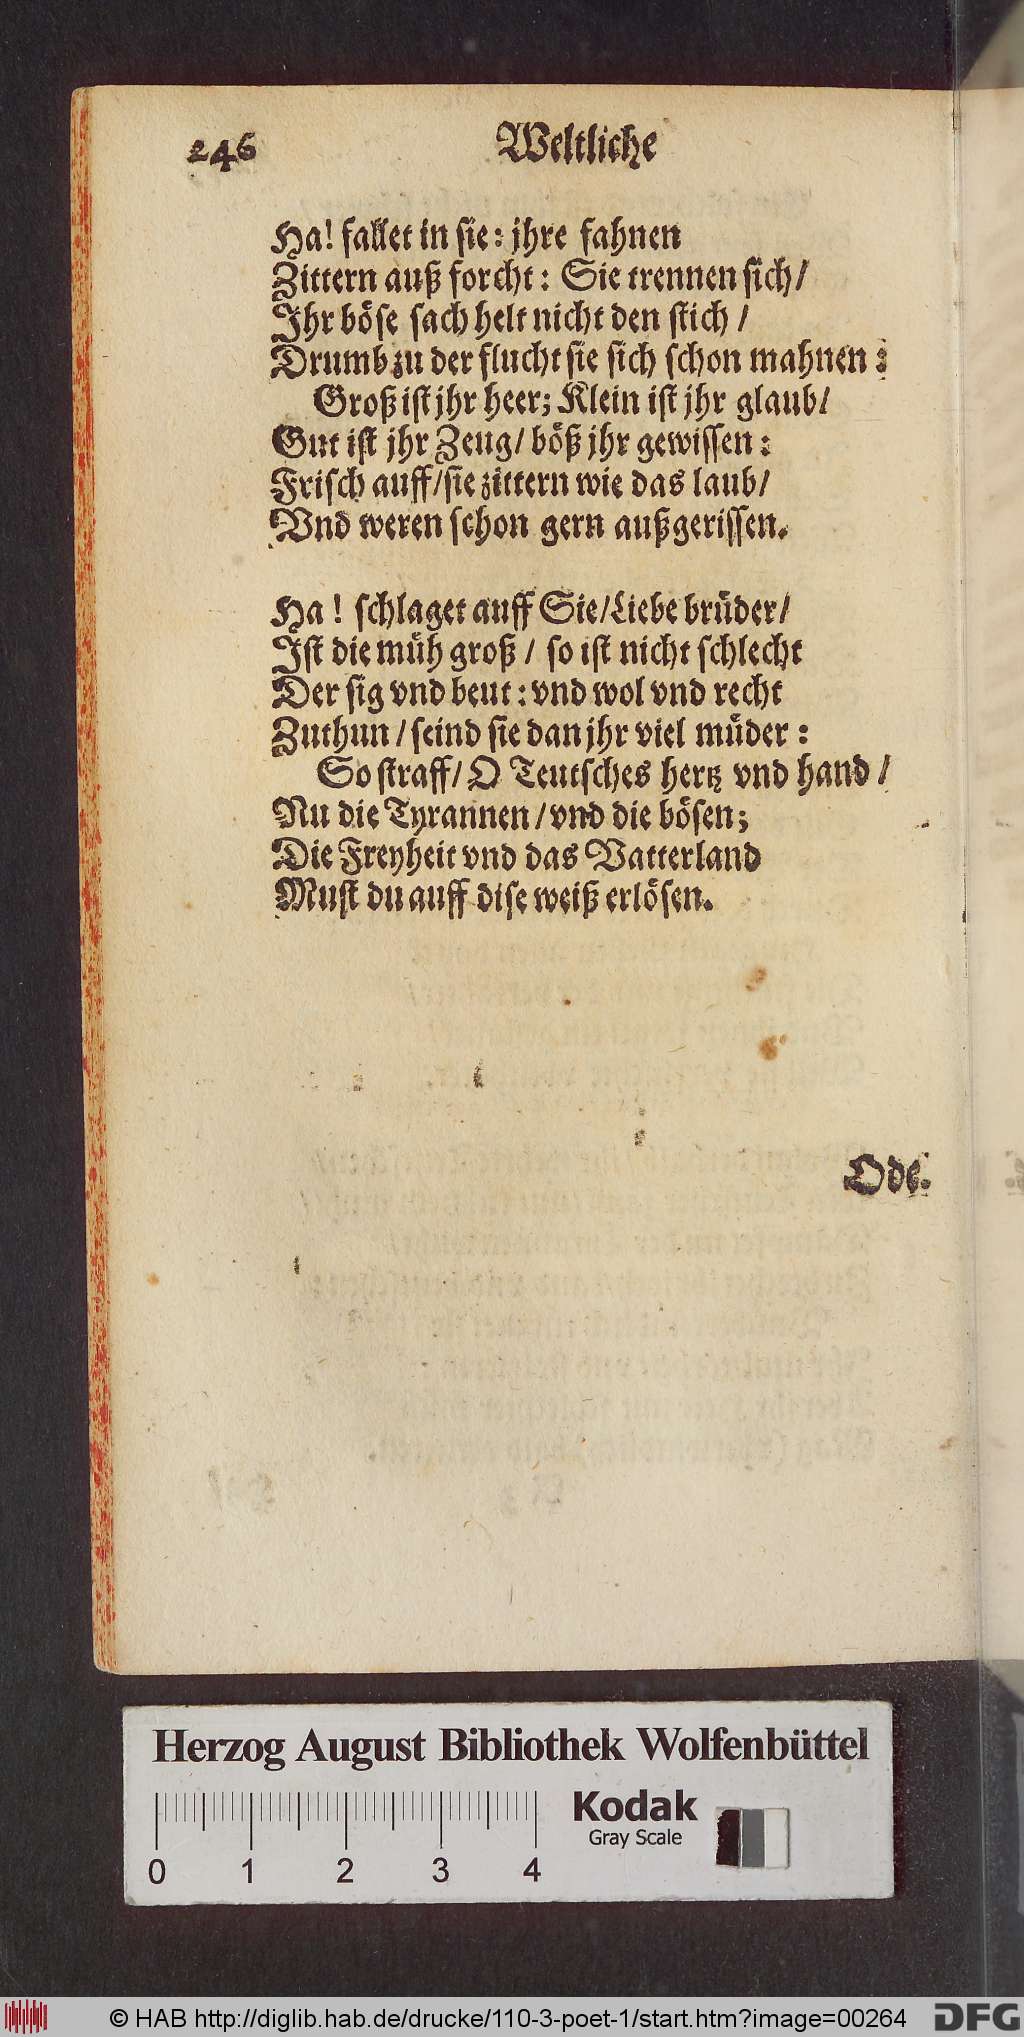 246 Weltliche
Ha! fallet in sie: jhre fahnen
Zittern auß forcht: Sie trennen sich/
Ihr böse sach helt nicht den stich /
Drumb zu der flucht sie sich schon mahnen:
Groß ist jhr heer; Klein ist jhr glaub/
Gut ist jhr Zeug/ böß jhr gewissen:
Frisch auff/sie zittern wie das laub/
Vnd weren schon gern außgerissen.
Ha! schlaget auff Sie/Liebe brüder/
Ist die müh groß / so ist nicht schlecht
Der sig vnd beut: vnd wol vnd recht
Zuthun / seind sie dan jhr viel müder:
So straff/ O Teutsches hertz vnd hand /
Nu die Tyrannen /vnd die bösen;
Die Freyheit vnd das Vatterland
Must du auff dise weiß erlösen.
Ode.
Herzog August Bibliothek Wolfenbüttel
Kodak
Gray Scale
0 1 2 3 4
© HAB http://diglib.hab.de/drucke/110-3-poet-1/start.htm?image=00264
DFG